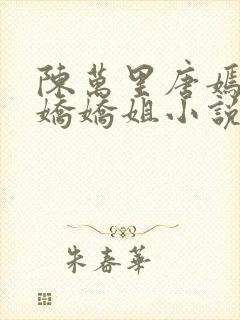 陳萬里唐嫣
嬌嬌姐小說
朱春華